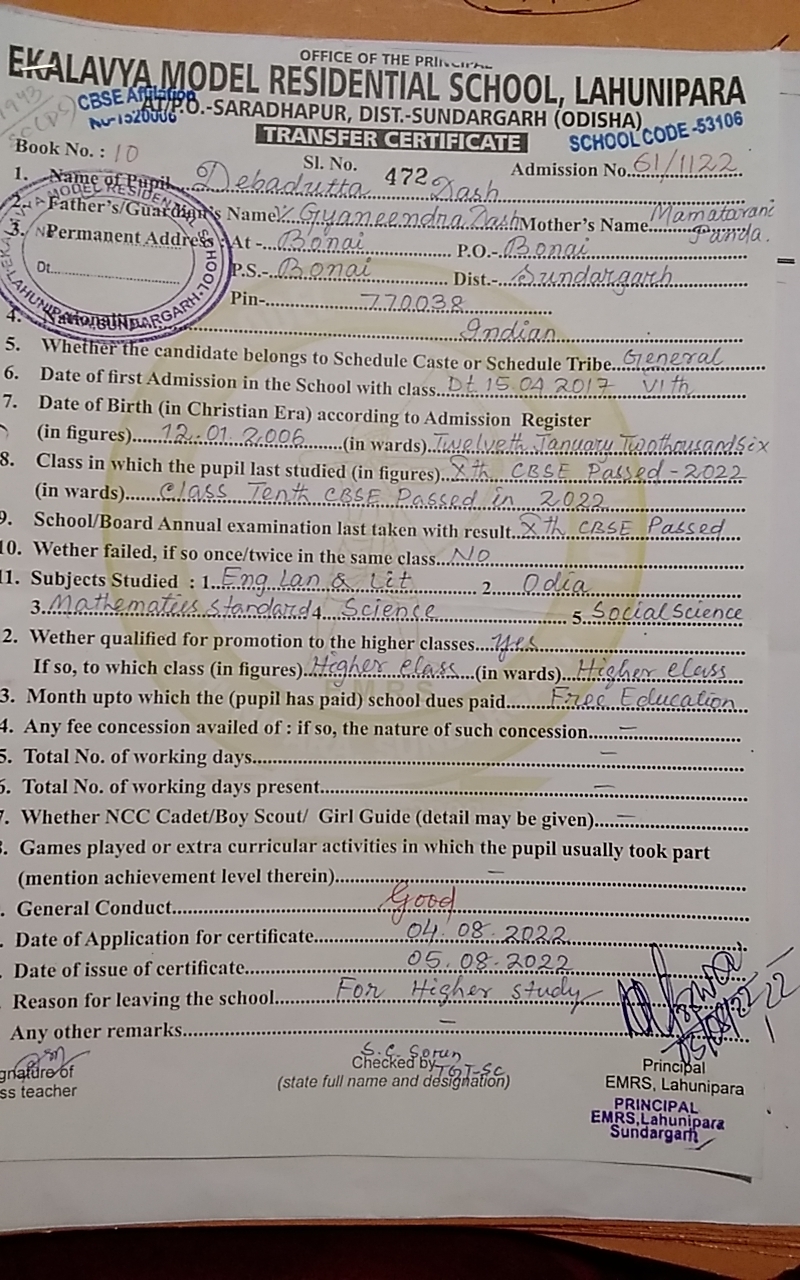 OFFICE OF THE PRINCIPAL
EKALAVYA MODEL RESIDENTIAL SCHOOL, LAHUNIPARA
CBSE Affiliation
AT/P.O.-SARADHAPUR, DIST.-SUNDARGARH (ODISHA)
No-1520006
SCHOOL CODE -53106
TRANSFER CERTIFICATE
Book No. : 10 Sl. No. 472 Admission No. 61/1122
1. Name of Pupil Debadutta Dash
2. Father's/Guardian's Name Gyaneendra Dash Mother's Name Mamatarani Panda.
3. Permanent Address : At - Bonai P.O.- Bonai
P.S.- Bonai Dist.- Sundargarh
Pin- 770038
Dt.
EKALAVYA MODEL RESIDENTIAL SCHOOL LAHUNIPARA SUNDARGARH
4. Nationality Indian
5. Whether the candidate belongs to Schedule Caste or Schedule Tribe General
6. Date of first Admission in the School with class Dt 15.04.2017 VIth
7. Date of Birth (in Christian Era) according to Admission Register
(in figures) 12.01.2006 (in words) Twelveth January Twothousandsix
8. Class in which the pupil last studied (in figures) Xth CBSE Passed - 2022
(in wards) Class Tenth CBSE Passed in 2022
9. School/Board Annual examination last taken with result Xth CBSE Passed
10. Wether failed, if so once/twice in the same class NO
11. Subjects Studied : 1. Eng Lan & Lit 2. Odia
3. Mathematics Standard 4. Science 5. Social Science
2. Wether qualified for promotion to the higher classes yes
If so, to which class (in figures) Higher class (in wards) Higher class
3. Month upto which the (pupil has paid) school dues paid Free Education
4. Any fee concession availed of : if so, the nature of such concession —
5. Total No. of working days —
6. Total No. of working days present —
7. Whether NCC Cadet/Boy Scout/ Girl Guide (detail may be given) —
. Games played or extra curricular activities in which the pupil usually took part
(mention achievement level therein) —
. General Conduct Good
. Date of Application for certificate 04.08.2022
. Date of issue of certificate 05.08.2022
. Reason for leaving the school For Higher study
Any other remarks —
05/08/22
S.C. Soren
gnature of Checked by TGT-Sc Principal
ss teacher (state full name and designation) EMRS, Lahunipara
PRINCIPAL
EMRS,Lahunipara
Sundargarh